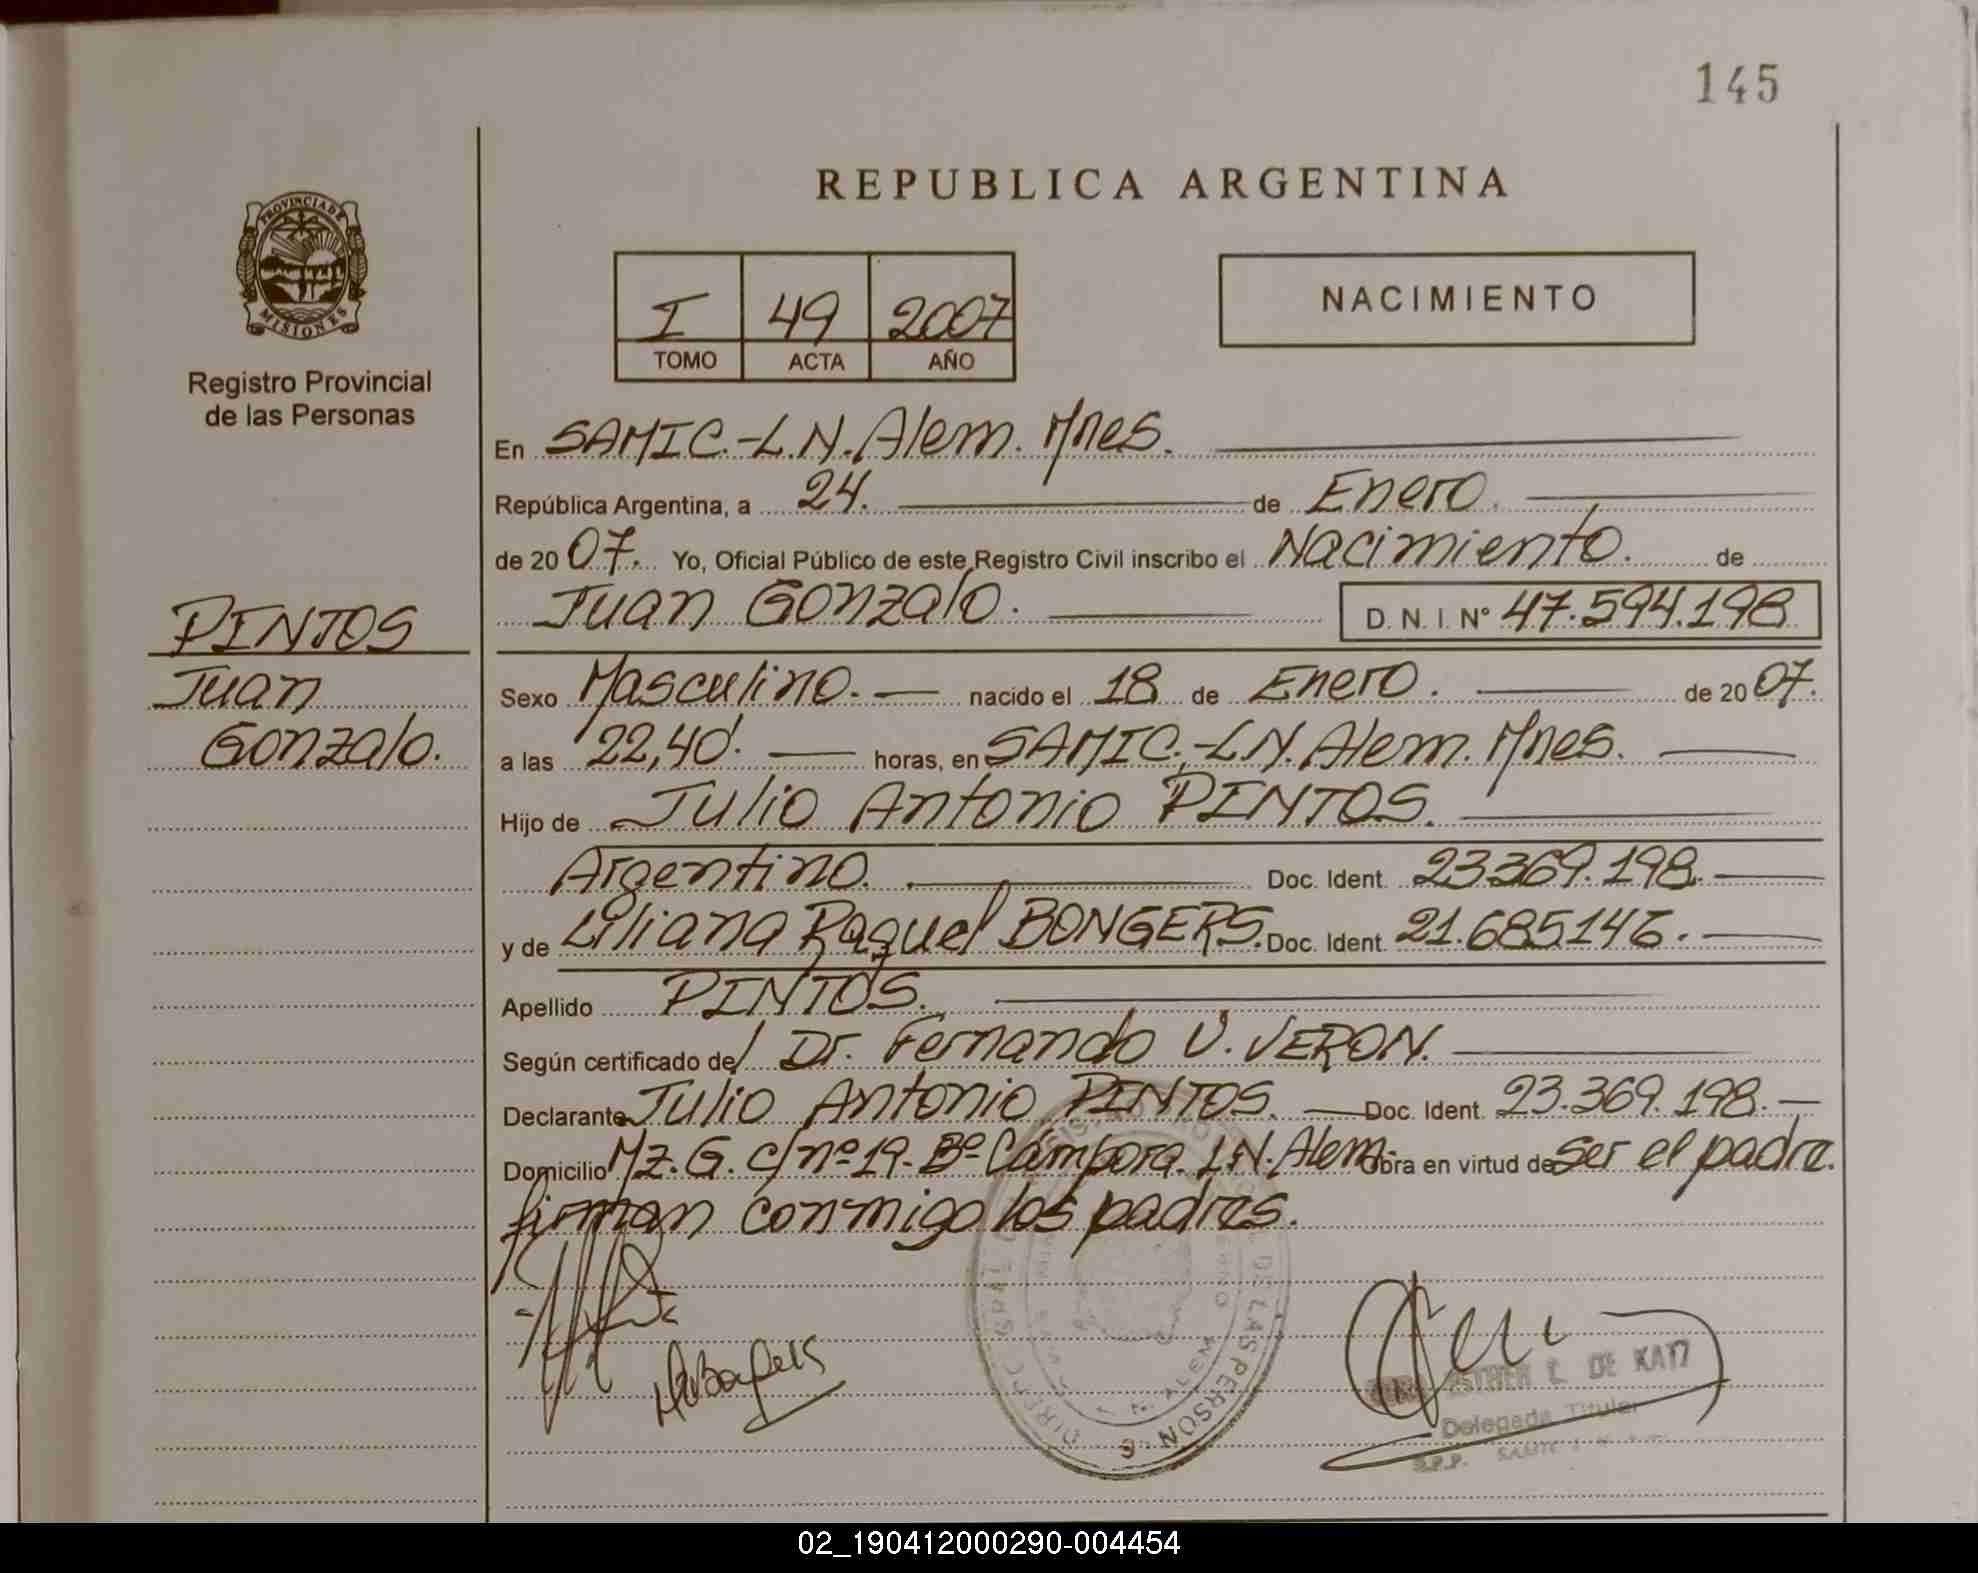 145
PROVINCIA DE
MISIONES
Registro Provincial
de las Personas
PINTOS
Juan
Gonzalo.
REPUBLICA ARGENTINA
I 49 2007
TOMO ACTA AÑO
NACIMIENTO
En SAMIC.-L.N.Alem. Mnes.
República Argentina, a 24. de Enero.
de 20 07. Yo, Oficial Público de este Registro Civil inscribo el Nacimiento. de
Juan Gonzalo. D. N. I. Nº 47.594.198
Sexo Masculino. nacido el 18 de Enero. de 20 07.
a las 22,40'. horas, en SAMIC.-L.N. Alem. Mnes.
Hijo de Julio Antonio PINTOS.
Argentino. Doc. Ident. 23.369.198.
y de Liliana Raquel BONGERS. Doc. Ident. 21.685146.
Apellido PINTOS.
Según certificado del Dr. Fernando V. VERON.
Declarante Julio Antonio PINTOS. Doc. Ident. 23.369.198.
Domicilio Mz. G. c/nº 19- Bº Cámpora. L.N. Alem. Obra en virtud de ser el padre.
firman conmigo los padres.
DE LAS PERSONAS
ALEM
ESTHER L. DE KATZ
Delegada Titular
R.P.P.
02_190412000290-004454